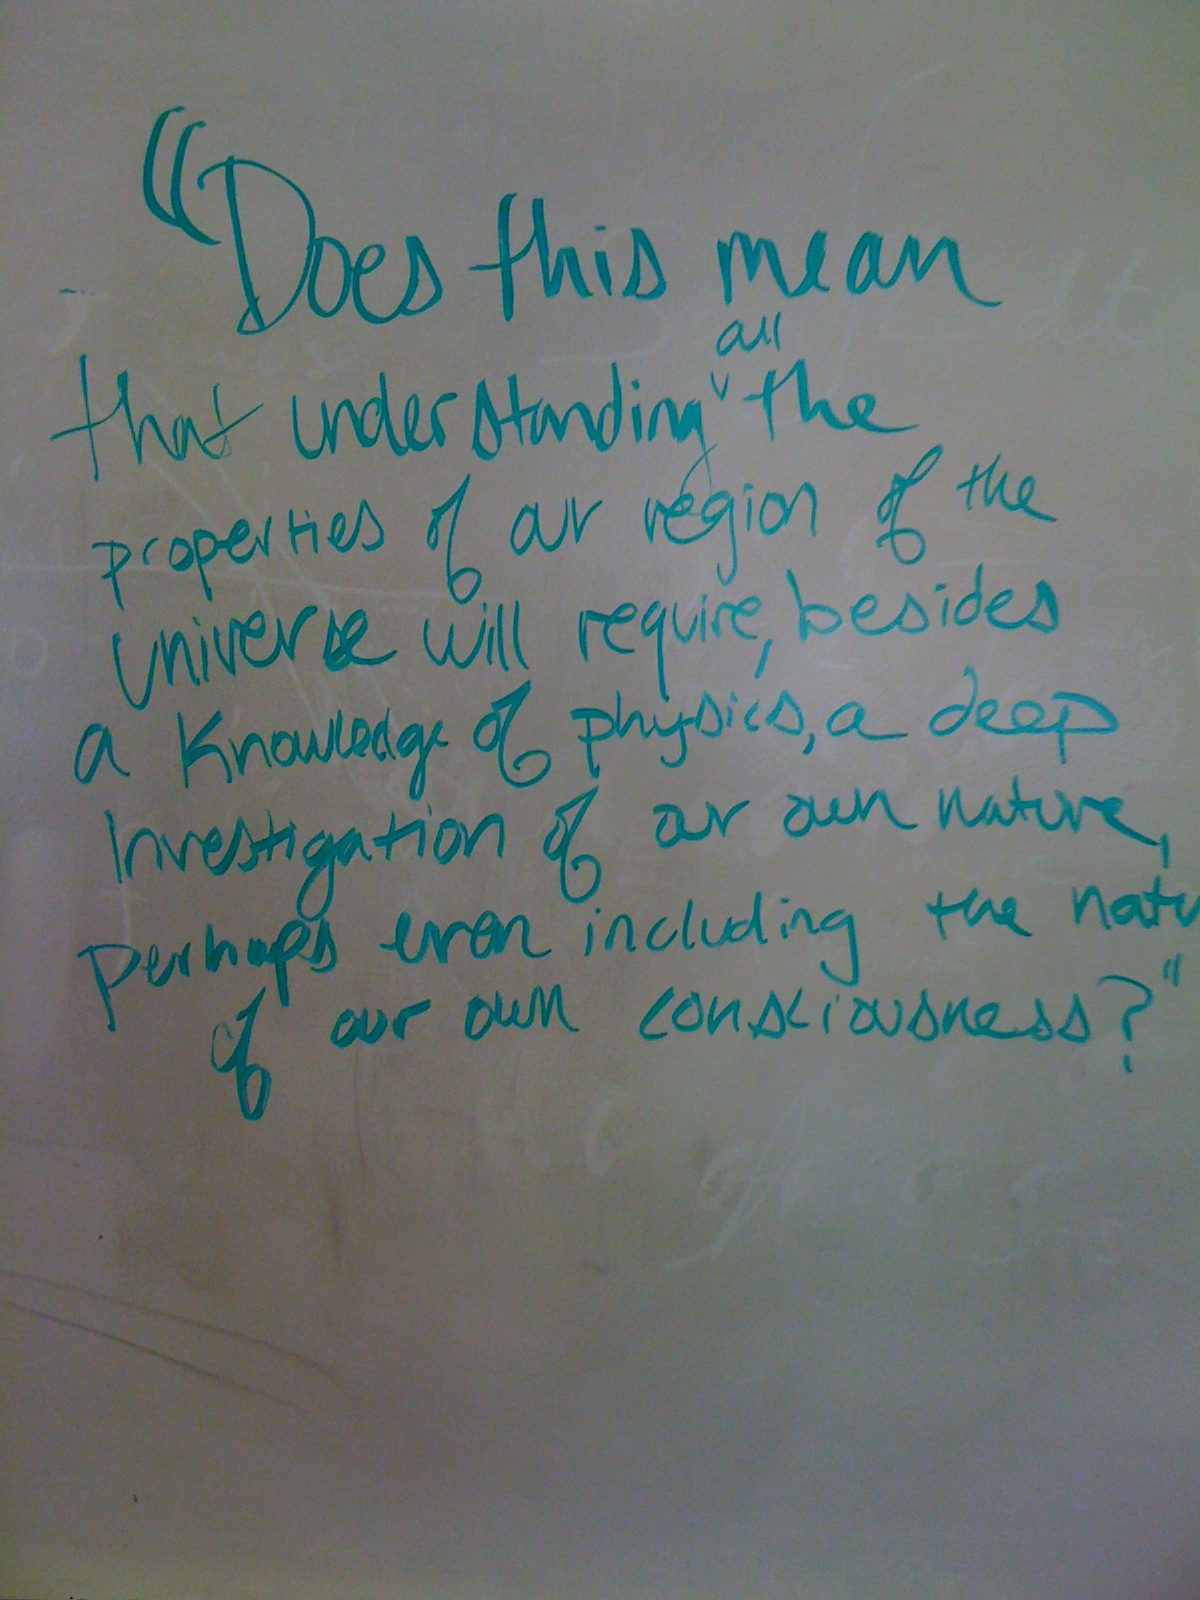 "Does this mean
that understanding all the
properties of our region of the
universe will require, besides
a knowledge of physics, a deep
investigation of our own nature,
perhaps even including the natu
of our own consciousness?"